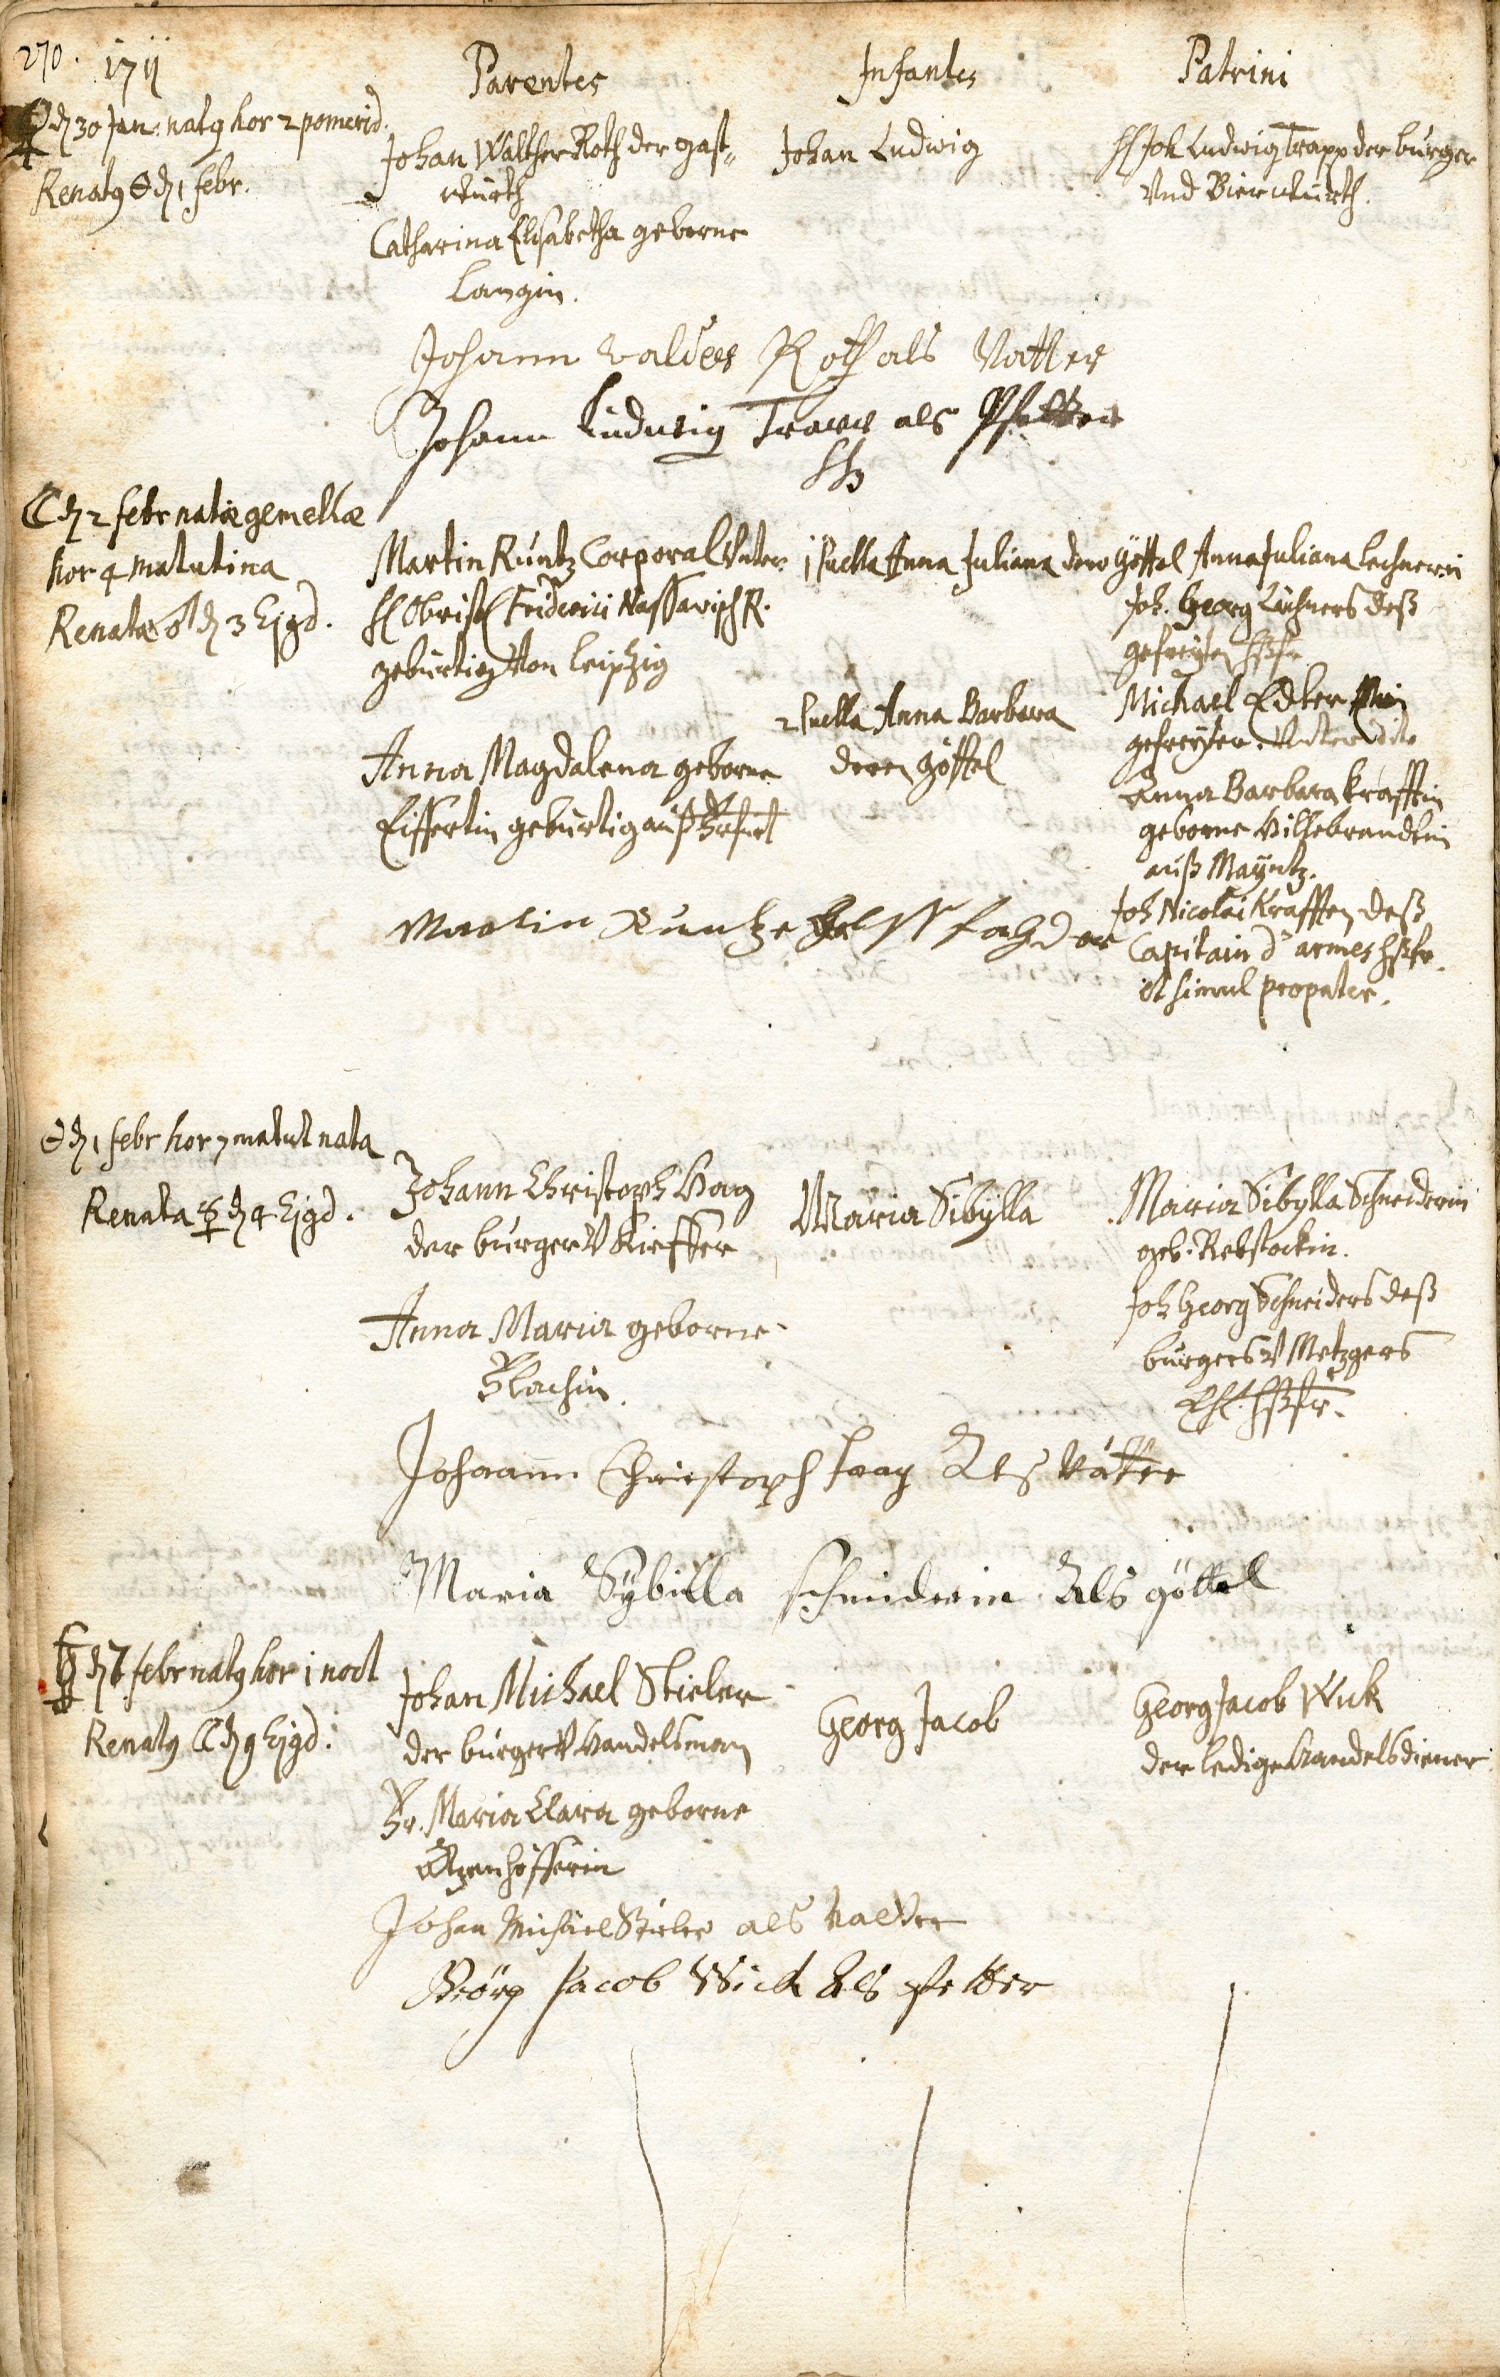 270. 1711
Parentes
Infantes
Patrini
♀ d 30 Jan: natq hor 2 pomerid.
Renatq ☉ d 1 febr.
Johan Walther Roth der gast„
würth
Catharina Elisabetha geborne
Langin.
Johan Ludwig
H Joh Ludwig Trapp der burger
Vnd Bierwürth.
Johann Roth als Vatter
Johann Ludwig als Pfetter
☾ d 2 febr natæ gemellæ
hor 4 matutina
Renatæ ♂ d 3 Ejgd.
Martin Küntz Corporal Vnter
H Obrist Friderici Nassavisch R.
gebürtig Von Leipzig
Anna Magdalena geborne
Eissertin gebürtig auß Erfurt
1 Puella Anna Juliana dero Göttel
2 Puella Anna Barbara
deren Göttel
Anna Juliana Lechnerin
Joh. Georg Lechners deß
gefreyten Hßfr
Michael Edler
gefreyter. Vnter dito
Anna Barbara Krafftin
geborne Hillebrandtin
auß Mayntz.
Joh Nicolai Krafften deß
Capitain d'armes Hßfr.
et simul propater.
Martin Kuntze
☉ d 1 febr hor 7 matut nata
Renata ☿ d 4 Ejgd.
Johann Christoph Haag
der burger V Kieffer
Anna Maria geborne
Blachin.
Maria Sibylla
Maria Sibylla Schneiderin
geb. Rebstockin.
Joh Georg Schneiders deß
burgers V Metzgers
Ehl. Hßfr.
Johann Christoph haag Als Vatter
Maria Sybilla schneiderin Als göttel
d 7 febr natq hor 1 noct
Renatq ☾ d 9 Ejgd.
Johan Michael Stieler
der burger V Handelsman
Fr. Maria Clara geborne
Georg Jacob
Georg Jacob Wick
der ledige Handelsdiener
Johan Michael Stieler als Vatter
Georg Jacob Wick Als pfetter